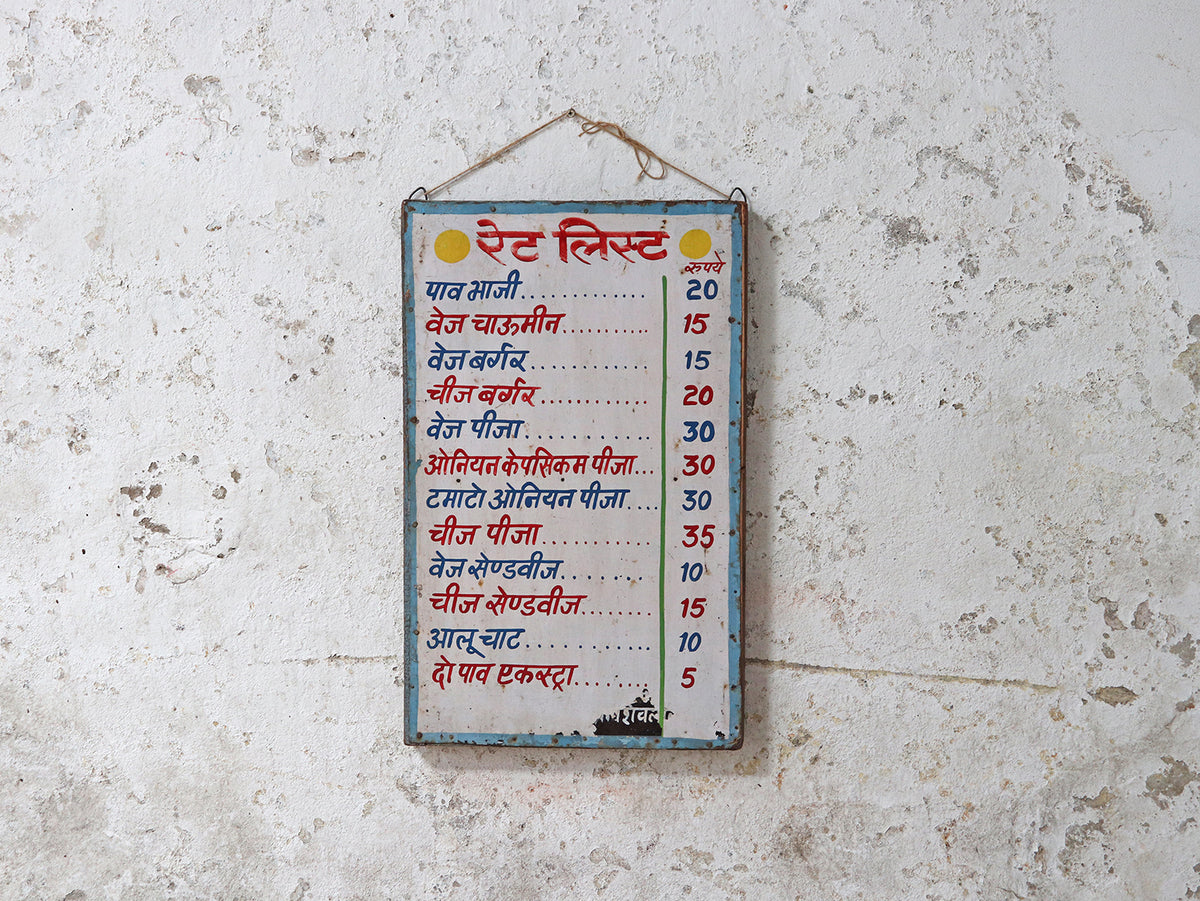 रेट लिस्ट
रुपये
पाव भाजी............. 20
वेज चाऊमीन.......... 15
वेज बर्गर............ 15
चीज बर्गर........... 20
वेज पीजा............ 30
ओनियन केपसिकम पीजा... 30
टमाटो ओनियन पीजा.... 30
चीज पीजा........... 35
वेज सेण्डवीज....... 10
चीज सेण्डवीज........ 15
आलू चाट............ 10
दो पाव एकस्ट्रा........ 5